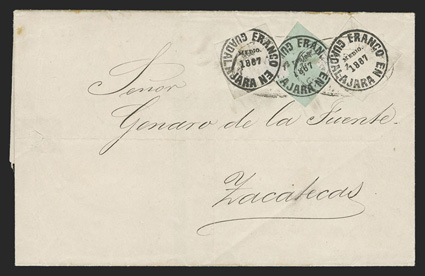 FRANCO EN GUADALAJARA
MEDIO.
1867
FRANCO EN GUADALAJARA
1867
FRANCO EN GUADALAJARA
MEDIO.
1867
Señor
Genaro de la Fuente.
Zacatecas